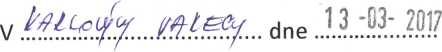 V KARLOVÝCH VARECH dne 13 -03- 2017